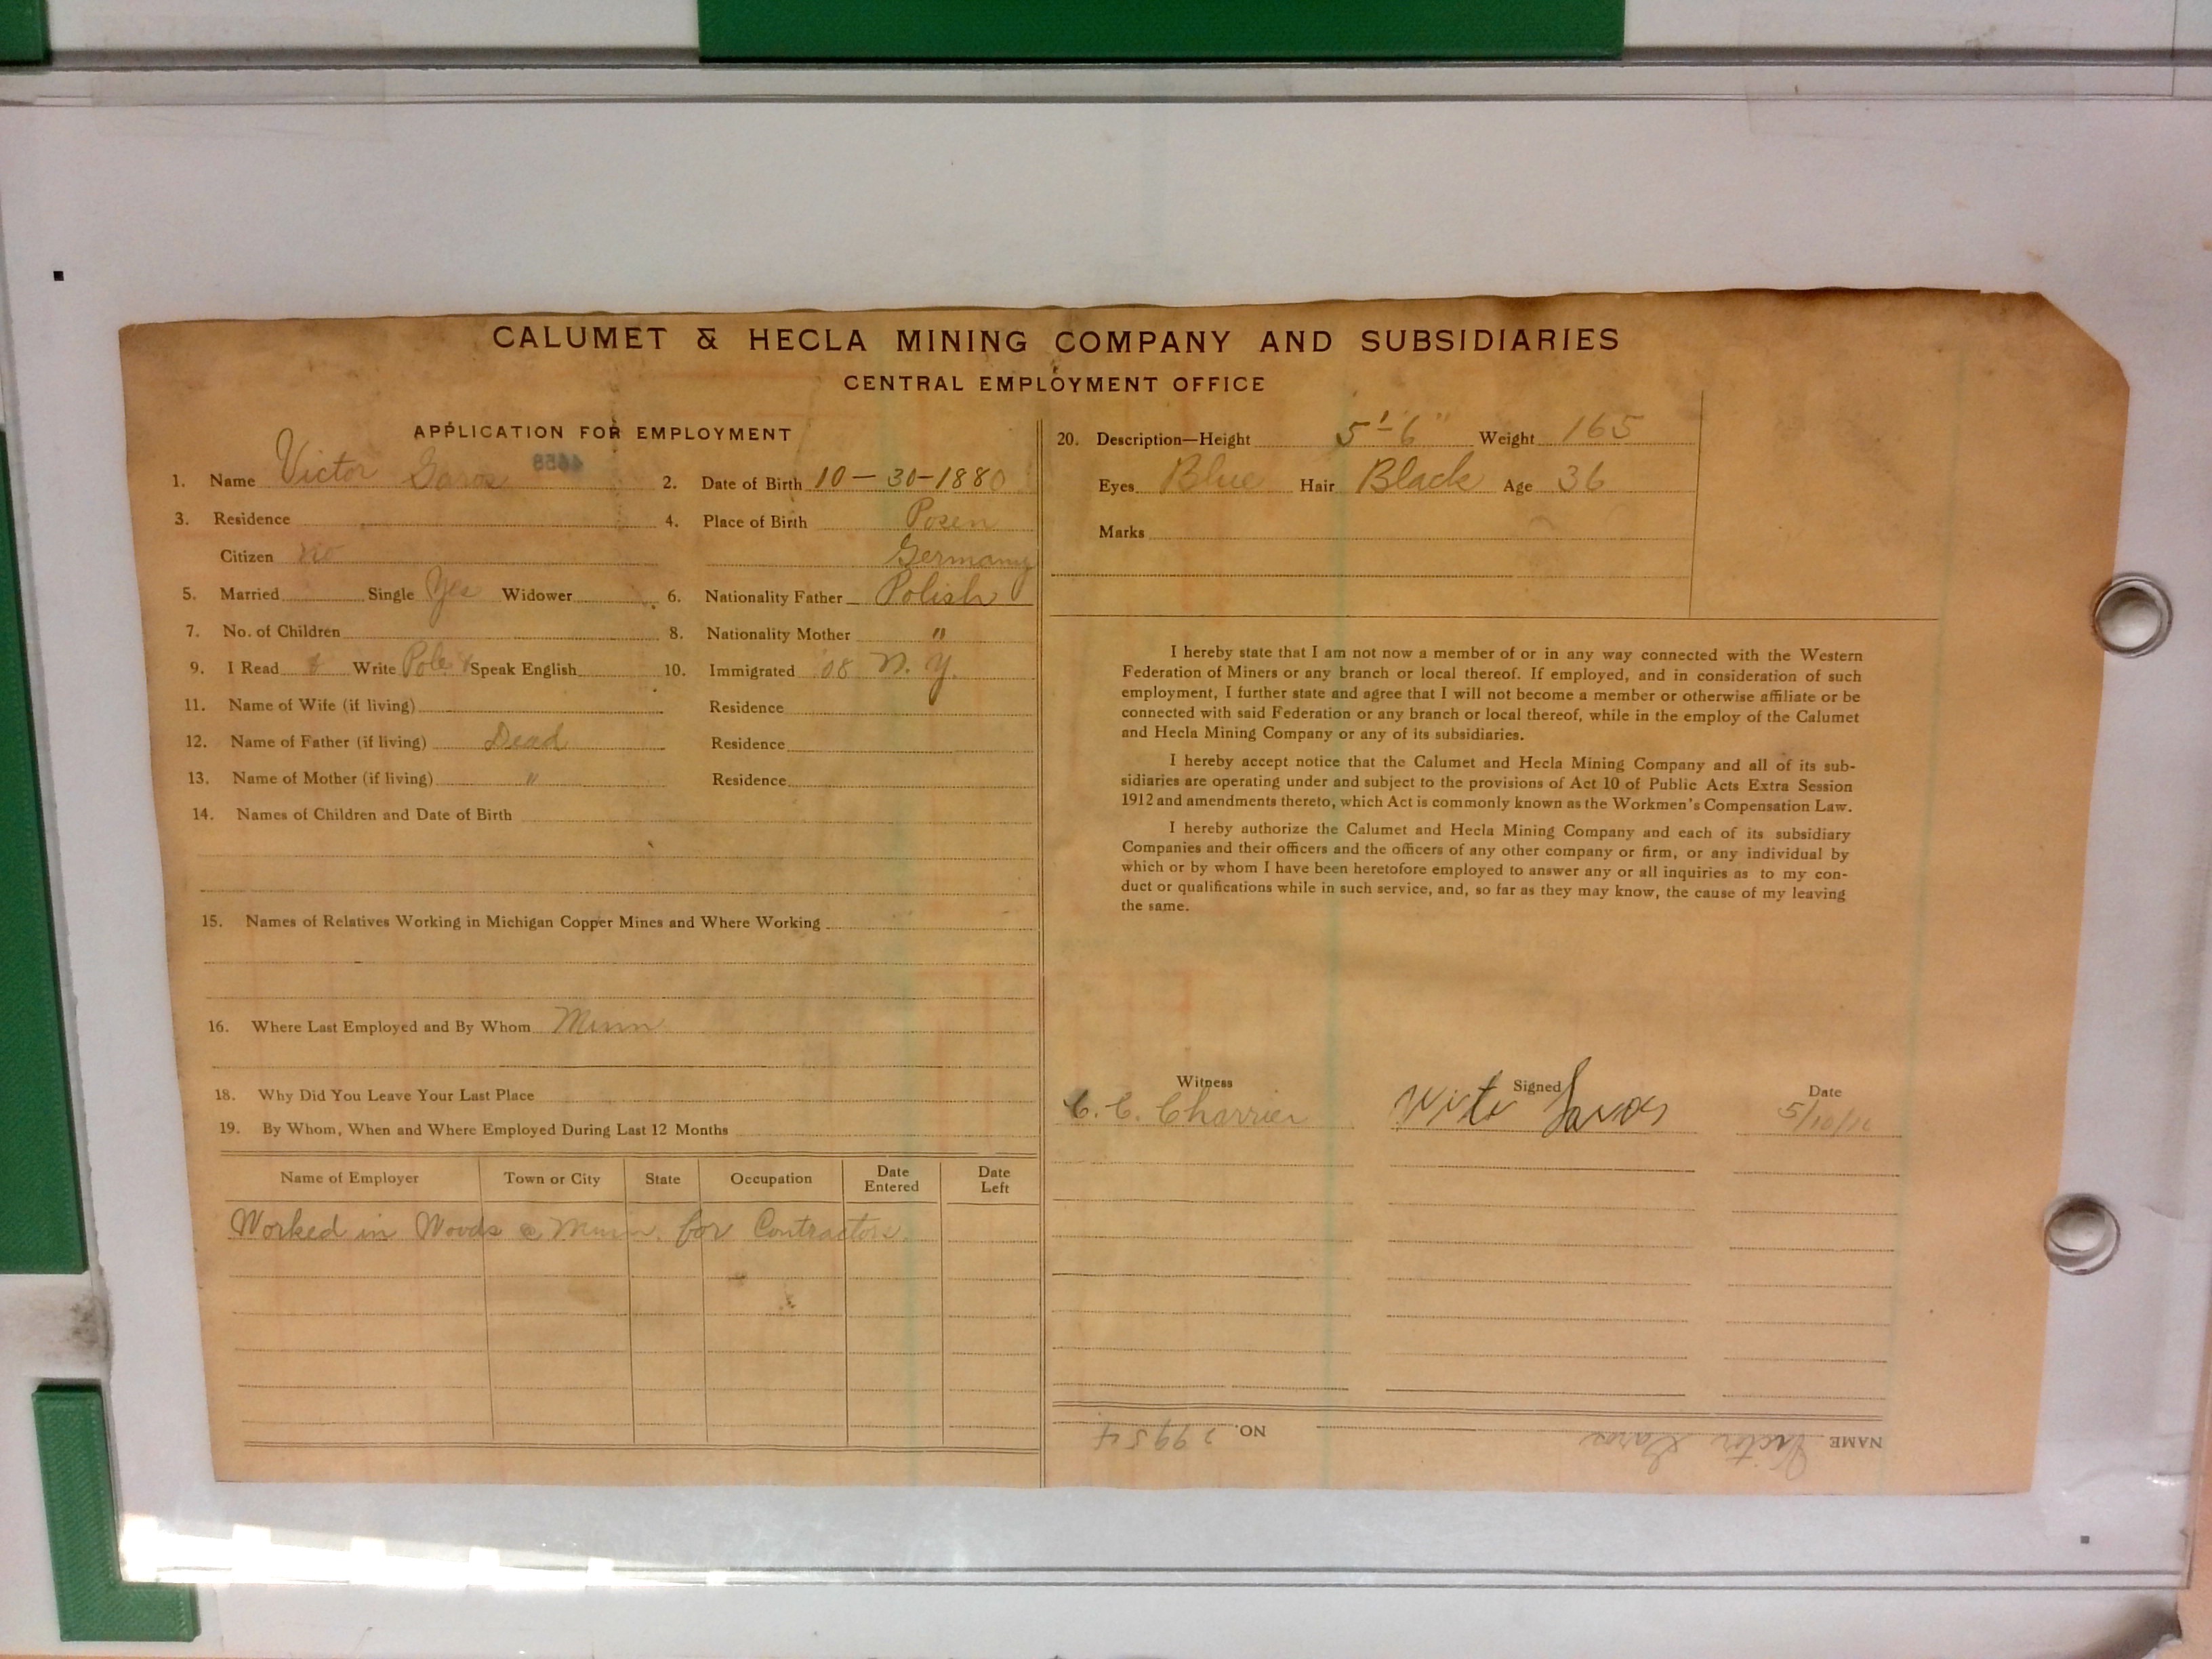 CALUMET & HECLA MINING COMPANY AND SUBSIDIARIES
CENTRAL EMPLOYMENT OFFICE
APPLICATION FOR EMPLOYMENT
1. Name Victor 2. Date of Birth 10-30-1880
3. Residence 4. Place of Birth Posen
Citizen no Germany
5. Married Single Yes Widower 6. Nationality Father Polish
7. No. of Children 8. Nationality Mother "
9. I Read & Write Pole & Speak English 10. Immigrated '08 N. Y.
11. Name of Wife (if living) Residence
12. Name of Father (if living) Dead Residence
13. Name of Mother (if living) " Residence
14. Names of Children and Date of Birth
15. Names of Relatives Working in Michigan Copper Mines and Where Working
16. Where Last Employed and By Whom Minn
18. Why Did You Leave Your Last Place
19. By Whom, When and Where Employed During Last 12 Months
Name of Employer Town or City State Occupation Date Entered Date Left
Worked in Woods @ Minn. for Contractors.
20. Description—Height 5'-6" Weight 165
Eyes Blue Hair Black Age 36
Marks
I hereby state that I am not now a member of or in any way connected with the Western
Federation of Miners or any branch or local thereof. If employed, and in consideration of such
employment, I further state and agree that I will not become a member or otherwise affiliate or be
connected with said Federation or any branch or local thereof, while in the employ of the Calumet
and Hecla Mining Company or any of its subsidiaries.
I hereby accept notice that the Calumet and Hecla Mining Company and all of its sub-
sidiaries are operating under and subject to the provisions of Act 10 of Public Acts Extra Session
1912 and amendments thereto, which Act is commonly known as the Workmen's Compensation Law.
I hereby authorize the Calumet and Hecla Mining Company and each of its subsidiary
Companies and their officers and the officers of any other company or firm, or any individual by
which or by whom I have been heretofore employed to answer any or all inquiries as to my con-
duct or qualifications while in such service, and, so far as they may know, the cause of my leaving
the same.
Witness Signed Date
C. C. Charrier 5/10/16
NAME Victor NO. 29954